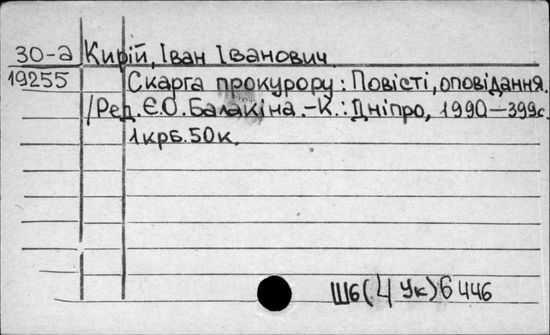 30-а Кирій, Іван Іванович.
19255 Скарга прокурору: Повісті, оповідання.
/Ред. Є.О. Балакіна.-К.: Дніпро, 1990-399с.
1крб. 50к.
Ш6(4Ук)6 446